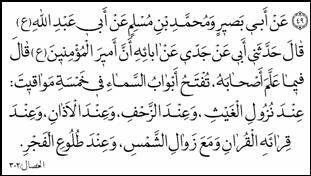 ٤٩ عَنْ أَبِي بَصِيرٍ وَمُحَمَّدِ بْنِ مُسْلِمٍ عَنْ أَبِي عَبْدِ اللهِ (ع)
قَالَ حَدَّثَنِي أَبِي عَنْ جَدِّي عَنْ ابَائِهِ أَنَّ أَمِيرَ الْمُؤْمِنِينَ (ع) قَالَ
فِيمَا عَلَّمَ أَصْحَابَهُ، تُفْتَحُ أَبْوَابُ السَّمَاءِ فِي خَمْسَةِ مَوَاقِيتَ:
عِنْدَ نُزُولِ الْغَيْثِ، وَعِنْدَ الزَّحْفِ، وَعِنْدَ الْأَذَانِ، وَعِنْدَ
قِرَائَةِ الْقُرْانِ وَمَعَ زَوَالِ الشَّمْسِ، وَعِنْدَ طُلُوعِ الْفَجْرِ.
الخصال/٣٠٢